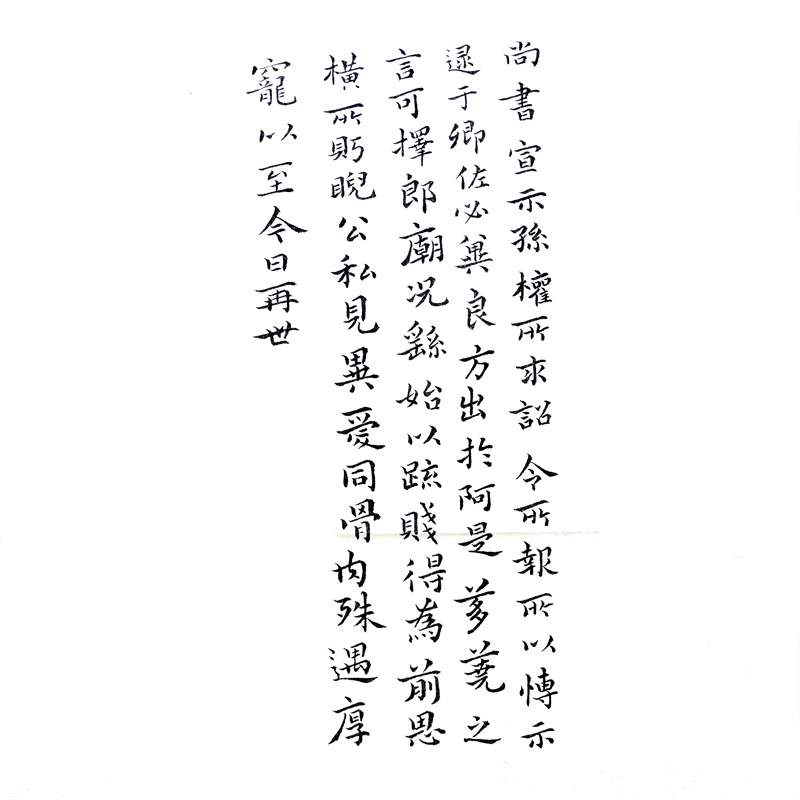 尚書宣示孫權所求詔令所報所以博示
逮于卿佐必冀良方出於阿是芻蕘之
言可擇郎廟況繇始以疏賤得為前恩
橫所眄睨公私見異愛同骨肉殊遇厚
寵以至今日再世